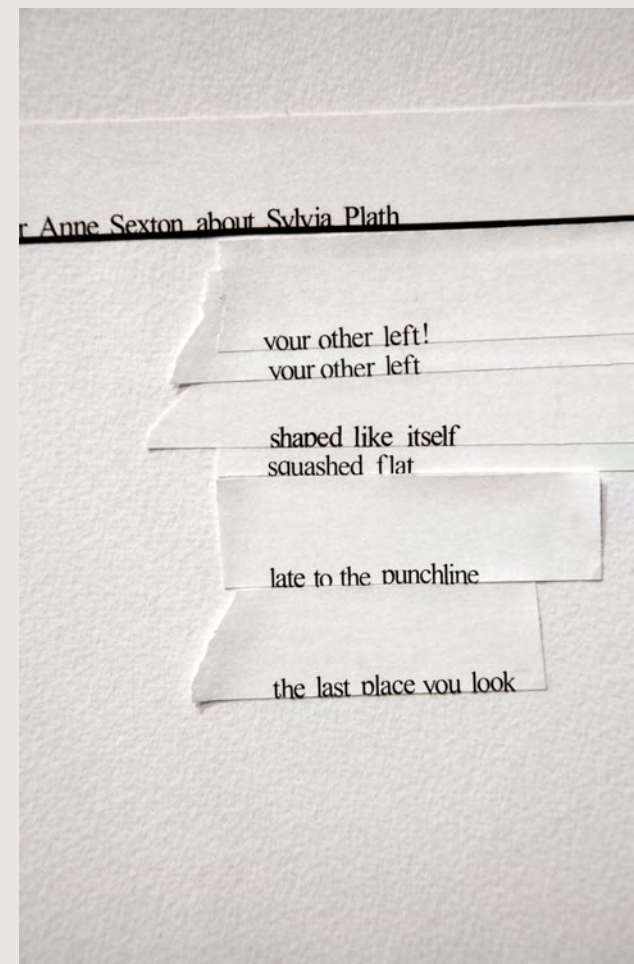 r Anne Sexton about Sylvia Plath
your other left!
your other left
shaped like itself
squashed flat
late to the punchline
the last place you look